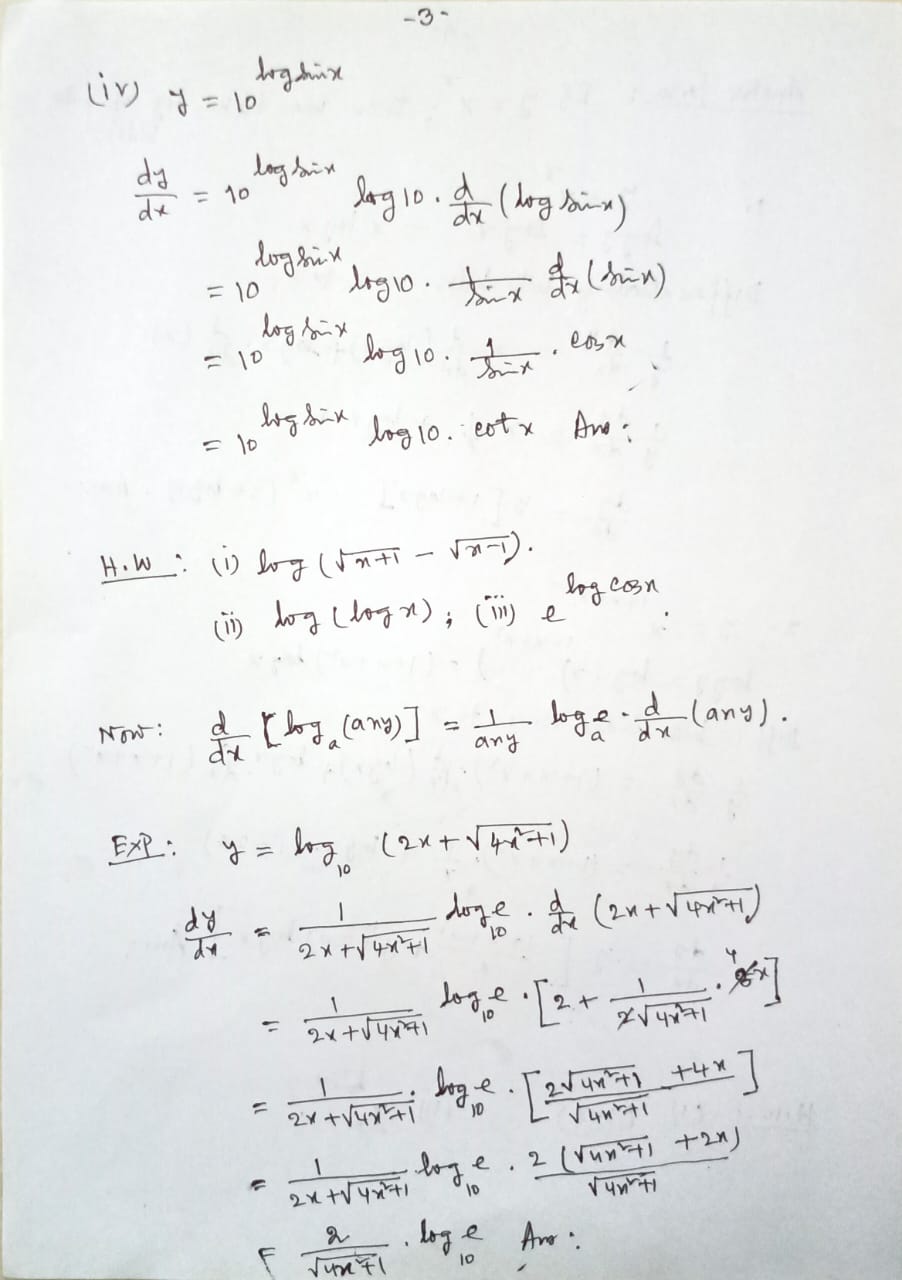 -3-
(iv) y = 10^{log sin x}
dy/dx = 10^{log sin x} log 10 . d/dx (log sin x)
= 10^{log sin x} log 10 . 1/sin x d/dx (sin x)
= 10^{log sin x} log 10 . 1/sin x . cos x
= 10^{log sin x} log 10 . cot x Ans :
H.W : (i) log (√(x+1) − √(x−1)).
(ii) log (log x) ; (iii) e^{log cos x} .
Now : d/dx [log_a (any)] = 1/any log_a e . d/dx (any) .
EXP : y = log_10 (2x + √(4x²+1))
dy/dx = 1/(2x + √(4x²+1)) log_10 e . d/dx (2x + √(4x²+1))
= 1/(2x + √(4x²+1)) log_10 e . [2 + 1/(2√(4x²+1)) . 4 8x]
= 1/(2x + √(4x²+1)) . log_10 e . [(2√(4x²+1) + 4x)/√(4x²+1)]
= 1/(2x + √(4x²+1)) . log_10 e . 2 (√(4x²+1) + 2x)/√(4x²+1)
= 2/√(4x²+1) . log_10 e Ans :